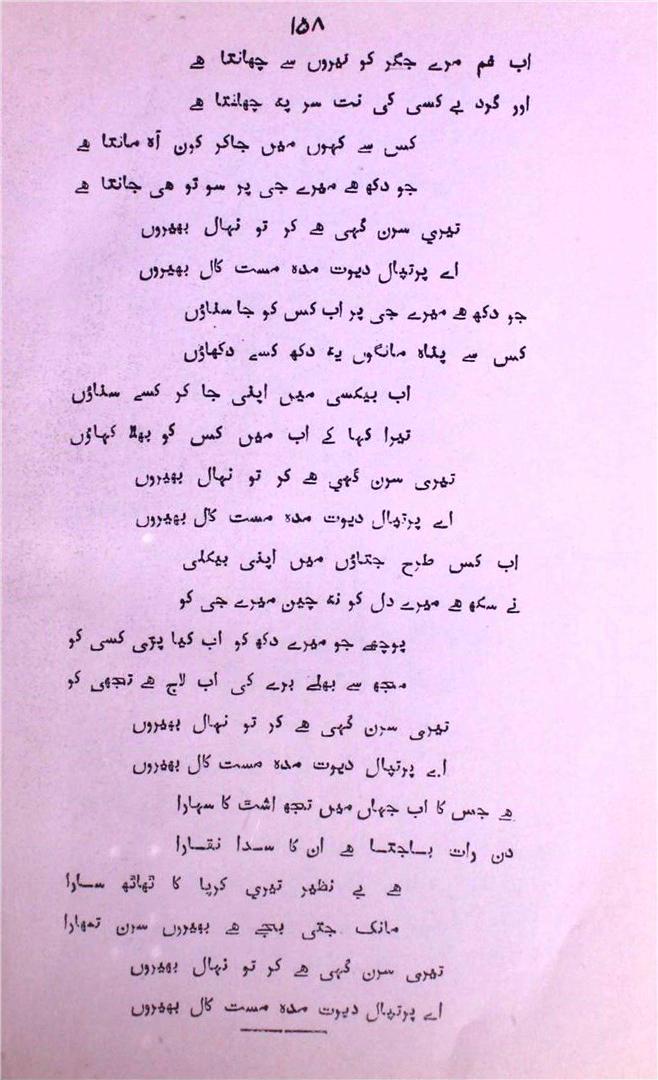 ۱۵۸
اب غم مرے جگر کو تیروں سے چھانتا ھے
اور گرد بے کسی کی نت سر پہ چھانتا ھے
کس سے کہوں میں جاکر کون آہ مانتا ھے
جو دکھ ھے میرے جی پر سو تو ھی جانتا ھے
تیری سرن گہی ھے کر تو نہال بھیروں
اے پرتپال دیوت مدہ مست کال بھیروں
جو دکھ ھے میرے جی پر اب کس کو جا سناؤں
کس سے پناہ مانگوں یہ دکھ کسے دکھاؤں
اب بیکسی میں اپنی جا کر کسے سناؤں
تیرا کہا کے اب میں کس کو بھلا کہاؤں
تیری سرن گہی ھے کر تو نہال بھیروں
اے پرتپال دیوت مدہ مست کال بھیروں
اب کس طرح جتاؤں میں اپنی بیکلی
نے سکھ ھے میرے دل کو نہ چین میرے جی کو
پوچھے جو میرے دکھ کو اب کیا پڑی کسی کو
مجھ سے بھلے برے کی اب لاج ھے تجھی کو
تیری سرن گہی ھے کر تو نہال بھیروں
اے پرتپال دیوت مدہ مست کال بھیروں
ھے جس کا اب جہاں میں تجھ اشت کا سہارا
دن رات بـاجتـا ھے ان کا سـدا نقـارا
ھے بے نظیر تیری کرپا کا ٹھاٹھ سـارا
مانک جتی بجے ھے بھیروں سرن تمھارا
تیری سرن گہی ھے کر تو نہال بھیروں
اے پرتپال دیوت مدہ مست کال بھیروں